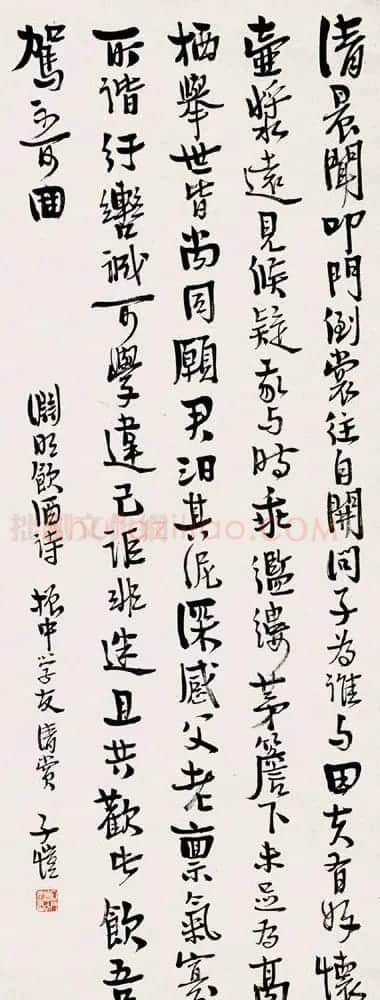 清晨聞叩門倒裳往自開問子為誰与田夫有好懷
壺漿遠見候疑我与時乖濫縷茅簷下未足為高
栖舉世皆尚同願君汩其泥深感父老稟氣寡
所諧紆轡誠可學違己詎非迷且共歡此飲吾
駕不可囬
淵明飲酒詩 振中学友清賞 子愷